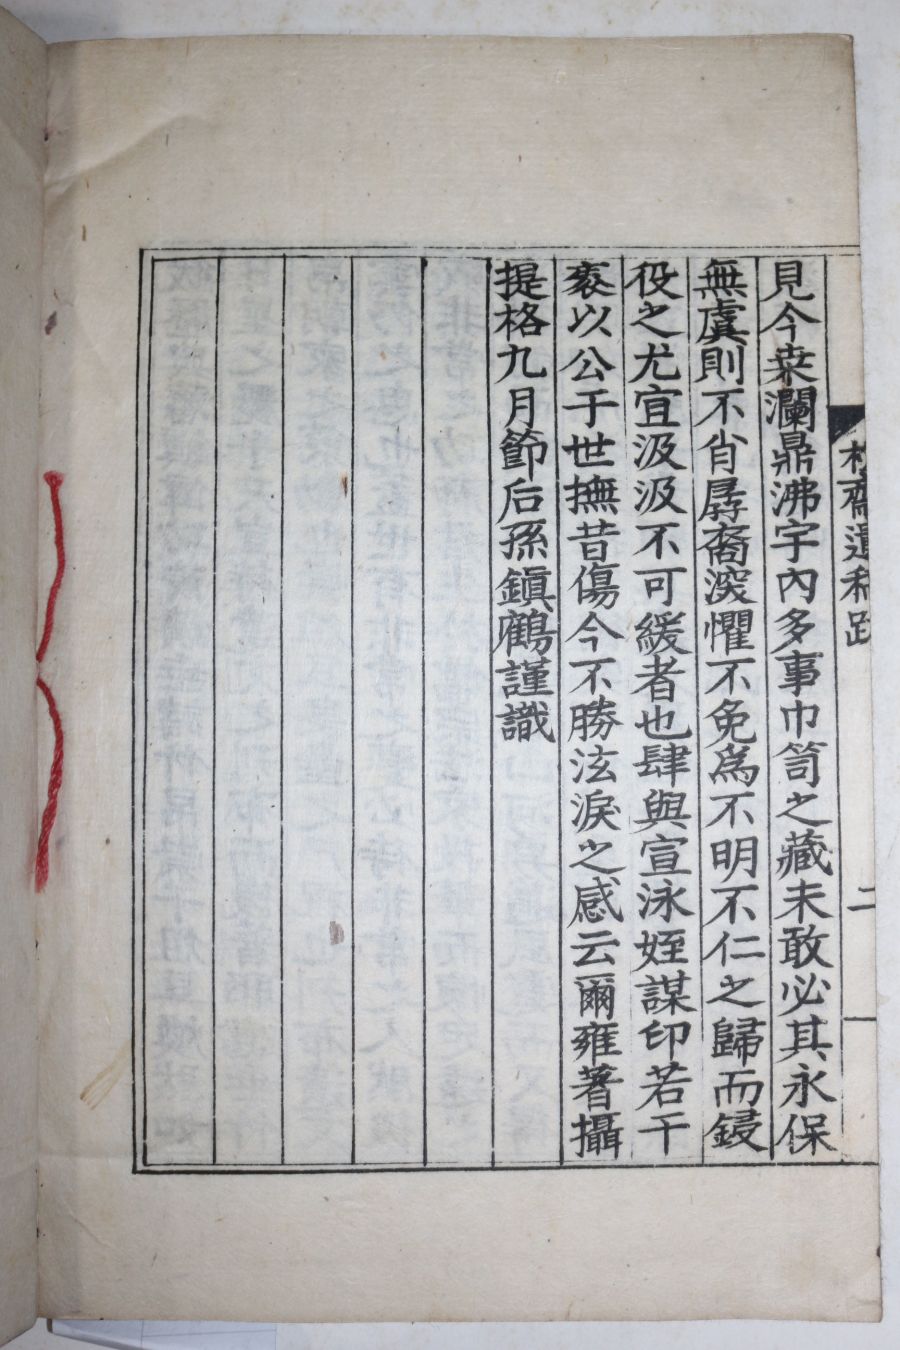 見今桒瀾鼎沸宇內多事巾笥之藏未敢必其永保
無虞則不肖孱裔深懼不免爲不明不仁之歸而鋟
役之尤宜汲汲不可緩者也肆與宣泳姪謀印若干
袠以公于世撫昔傷今不勝泫淚之感云爾雍著攝
提格九月節后孫鎭鶴謹識
齋遺稿跋
二